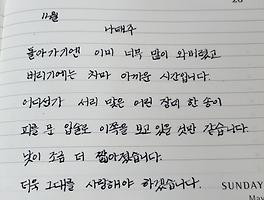 11월
나태주
돌아가기엔 이미 너무 많이 와버렸고
버리기에는 차마 아까운 시간입니다.
어디선가 서리 맞은 어린 장미 한 송이
피를 문 입술로 이쪽을 보고 있을 것만 같습니다.
낮이 조금 더 짧아졌습니다.
더욱 그대를 사랑해야 하겠습니다.
SUNDAY
May